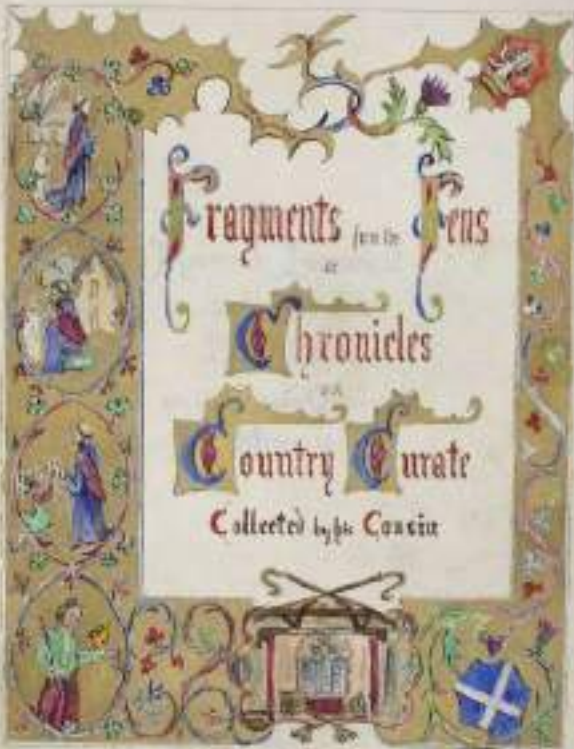 Fragments from the Fens
or
Chronicles
of a
Country Curate
Collected by his Cousin